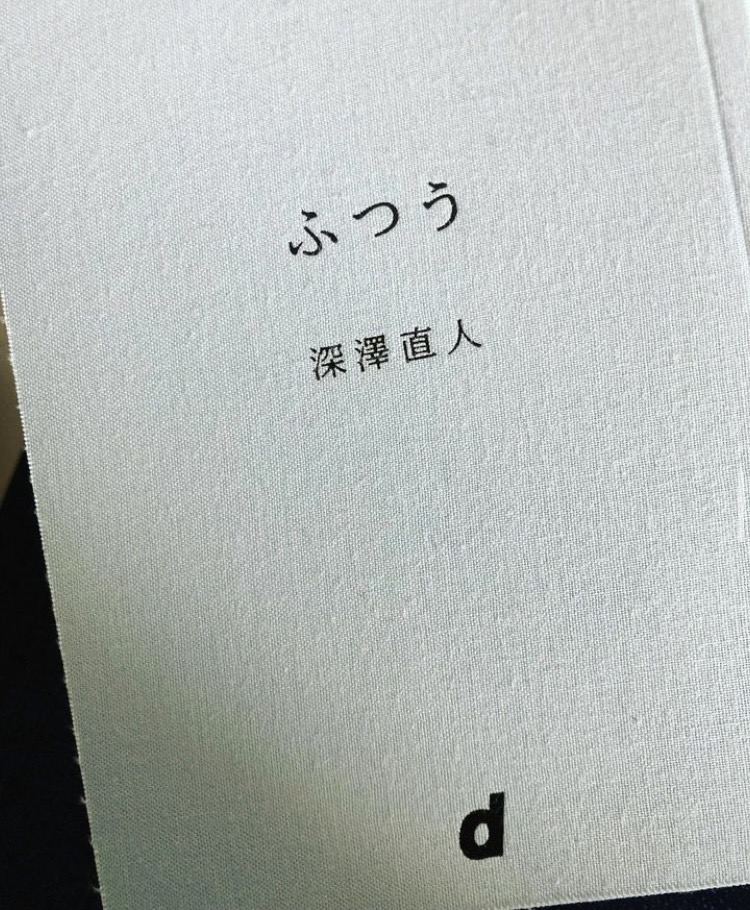 ふつう
深澤直人
d